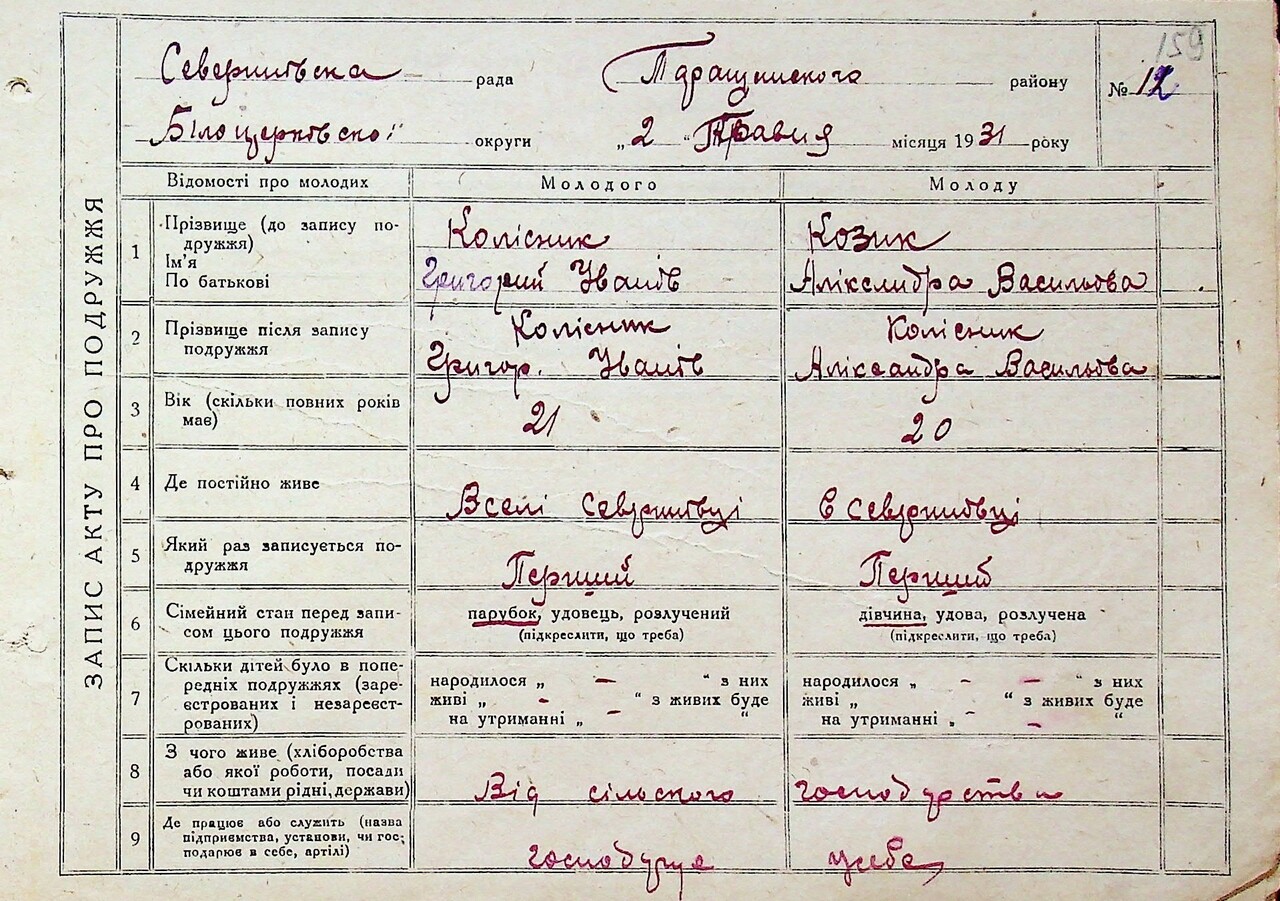 159
Северинівська рада Тдращанского району № 12
Білоцерківської округи „2“ Травня місяця 1931 року
ЗАПИС АКТУ ПРО ПОДРУЖЖЯ
Відомості про молодих Молодого Молоду
1 Прізвище (до запису по- Колісник Козик
дружжя)
Ім'я
По батькові Григорий Иванів Аліксандра Васильова
2 Прізвище після запису Колісник Колісник
подружжя Григор. Иванів Аліксандра Васильова
3 Вік (скільки повних років 21 20
має)
4 Де постійно живе Вселі Севринівці в Севринівці
5 Який раз записується по- Перший Перший
дружжя
6 Сімейний стан перед запи- парубок, удовець, розлучений дівчина, удова, розлучена
сом цього подружжя (підкреслити, що треба) (підкреслити, що треба)
7 Скільки дітей було в попе-
редніх подружжях (заре- народилося „ — “ з них народилося „ - — “ з них
єстрованих і незареєст- живі „ - “ з живих буде живі „ “ з живих буде
рованих) на утриманні „ — “ на утриманні „ - — “
8 З чого живе (хліборобства
або якої роботи, посади
чи коштами рідні, держави) Від сільского господарства
9 Де працює або служить (назва
підприємства, установи, чи гос-
подарює в себе, артілі) господарує усебе